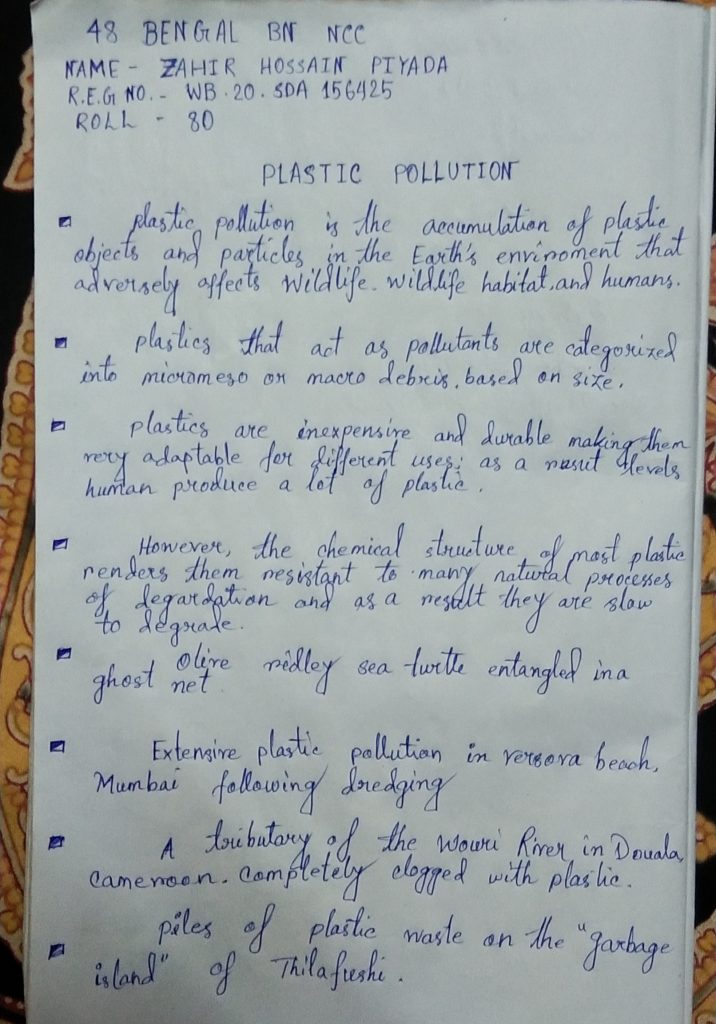 48 BENGAL BN NCC
NAME - ZAHIR HOSSAIN PIYADA
R.E.G NO. - WB.20.SDA 156425
ROLL - 80
PLASTIC POLLUTION
plastic pollution is the accumulation of plastic
objects and particles in the Earth's envinoment that
adversely affects wildlife. wildlife habitat, and humans.
plastics that act as pollutants are categorized
into micromeso or macro debris, based on size.
plastics are inexpensive and durable making them
very adaptable for different uses; as a resut levels
human produce a lot of plastic.
However, the chemical structure of most plastic
renders them resistant to many natural processes
of degardation and as a result they are slow
to degrade.
Olive ridley sea turtle entangled in a
ghost net
Extensive plastic pollution in versova beach,
Mumbai following dredging
A tributary of the Wouri River in Douala,
cameroon. completely clogged with plastic.
piles of plastic waste on the "garbage
island" of Thilafushi.